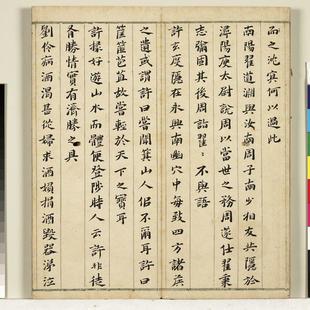 而之沈冥何以過此
南陽翟道淵與汝南周子南少相友共隱於
潯陽庾太尉說周以當世之務周遂仕翟秉
志彌固其後周詣翟〻不與語
許玄度隱在永興南幽穴中每致四方諸侯
之遺或謂許曰嘗聞箕山人侶不爾耳許曰
筐篚苞苴故嘗輕於天下之寶耳
許掾好遊山水而體便登陟時人云許非徒
有勝情實有濟勝之具
劉伶病酒渴甚從婦求酒婦捐酒毀器涕泣